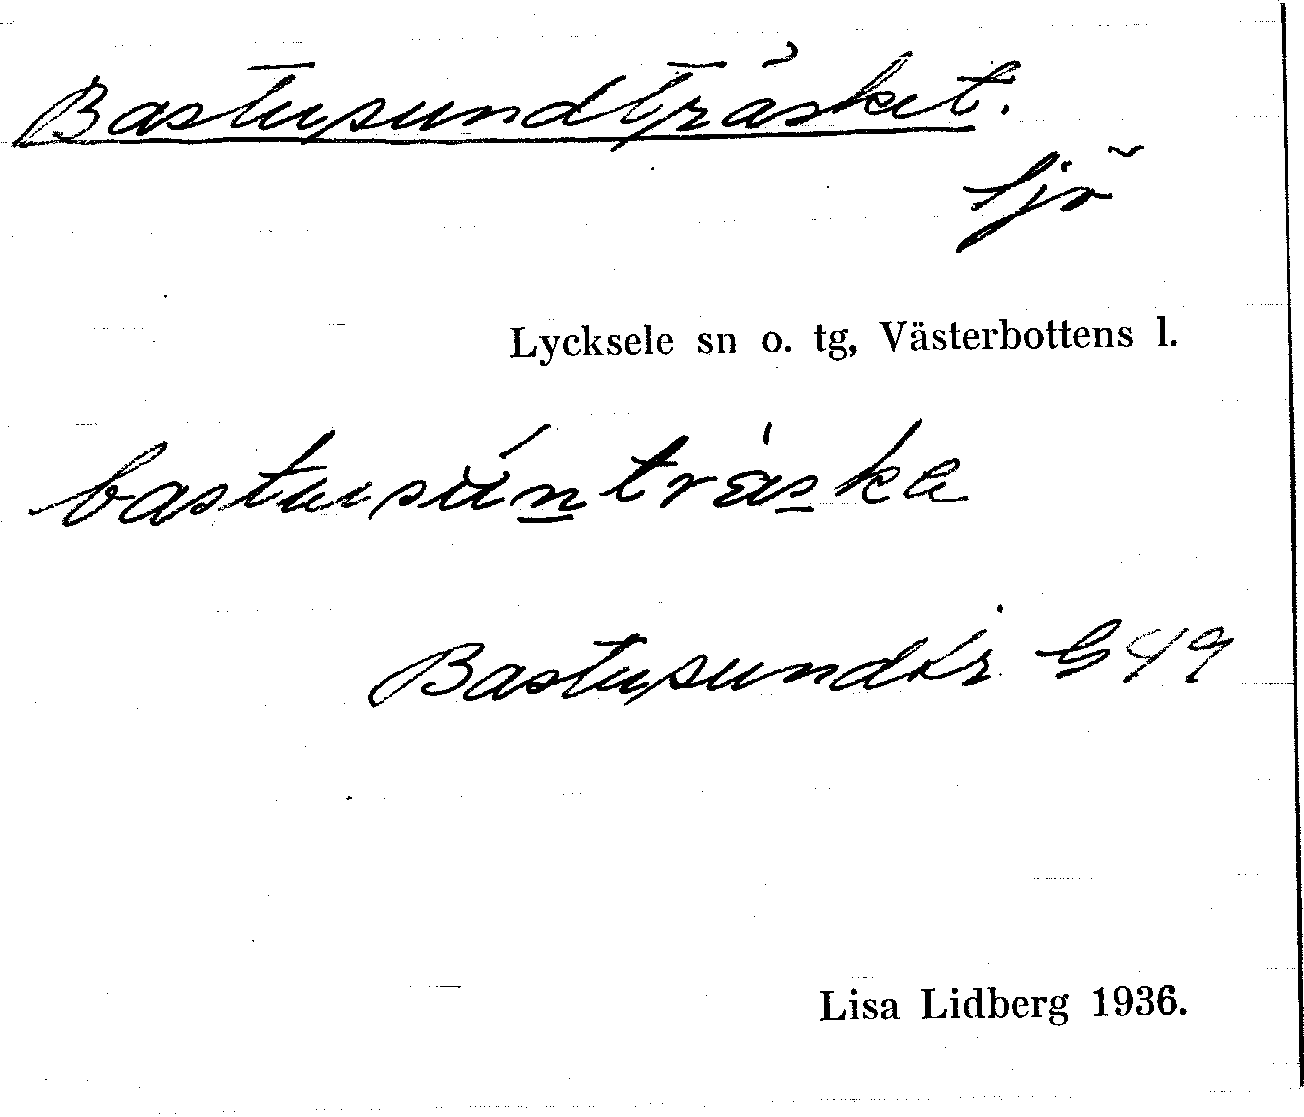 Bastusundträsket.
sjö
Lycksele sn o. tg, Västerbottens l.
bastusúntráska
Bastusund G 49
Lisa Lidberg 1936.